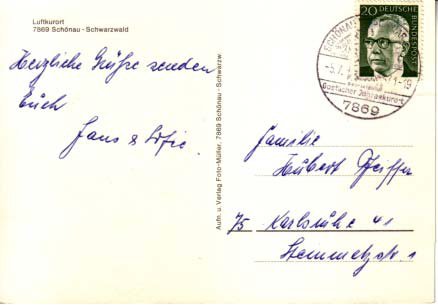 Luftkurort
7869 Schönau - Schwarzwald
Herzliche Grüße senden
Euch
Hans & Sofie.
Aufn. u. Verlag Foto-Müller, 7869 Schönau - Schwarzw.
20 DEUTSCHE BUNDESPOST
SCHÖNAU
7869
Familie
Hubert Pfeiffer
75 Karlsruhe 41
Steinmetzstr. 1